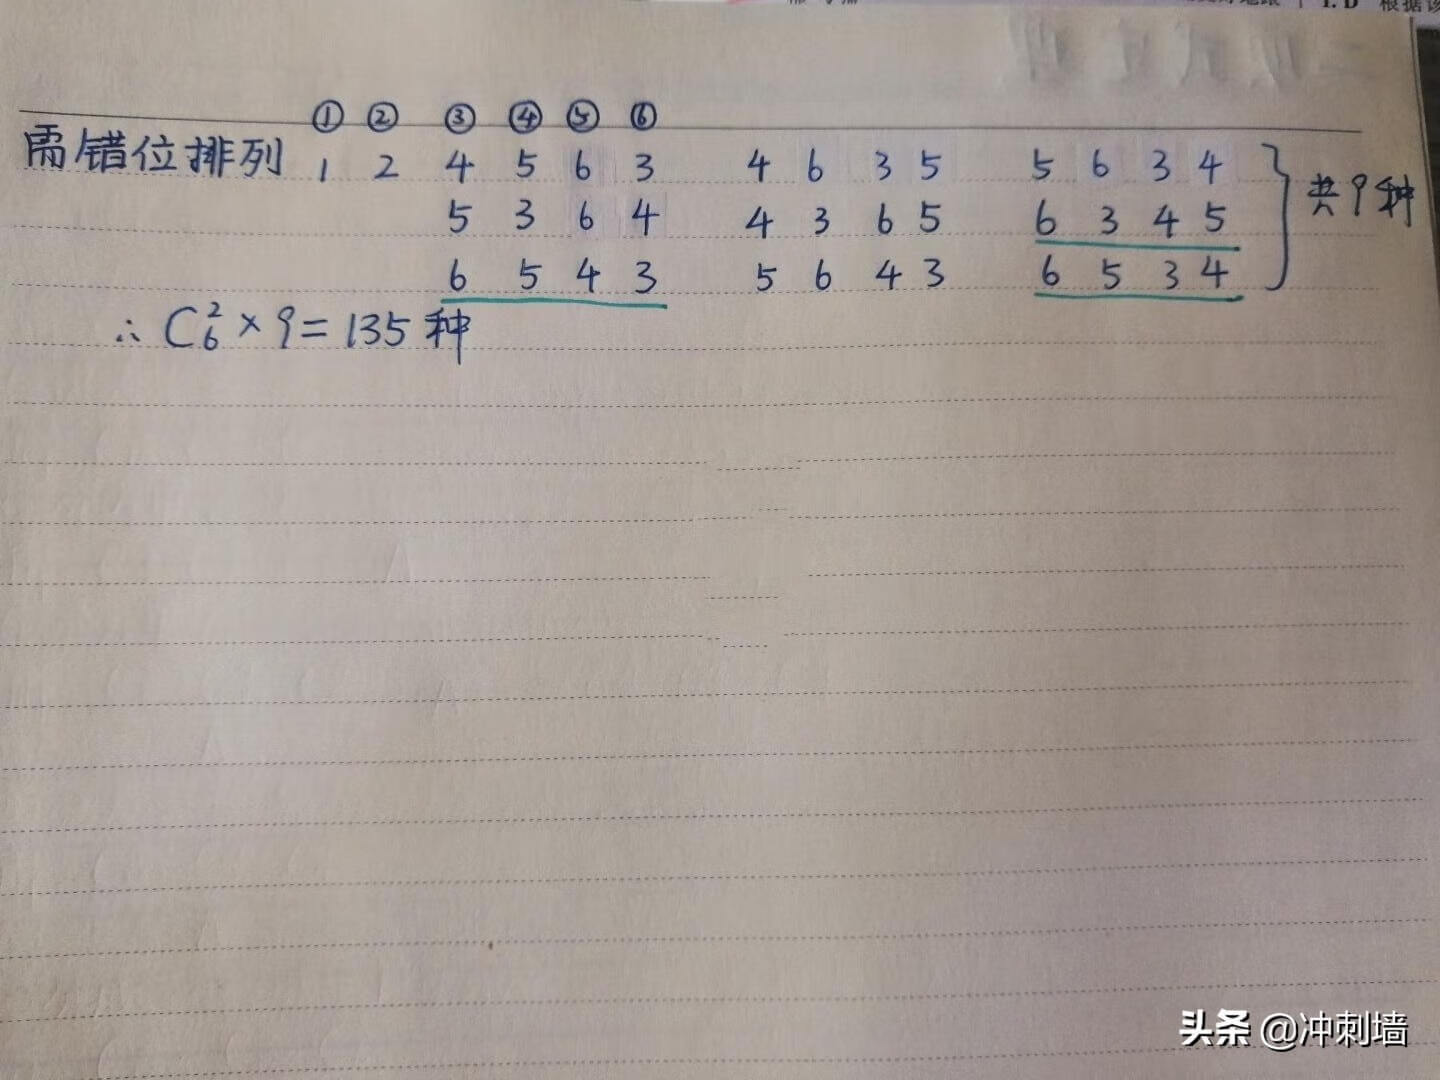 ① ② ③ ④ ⑤ ⑥
需错位排列 1 2 4 5 6 3 4 6 3 5 5 6 3 4 共9种
5 3 6 4 4 3 6 5 6 3 4 5
6 5 4 3 5 6 4 3 6 5 3 4
∴ C₆² × 9 = 135 种
头条 @冲刺墙